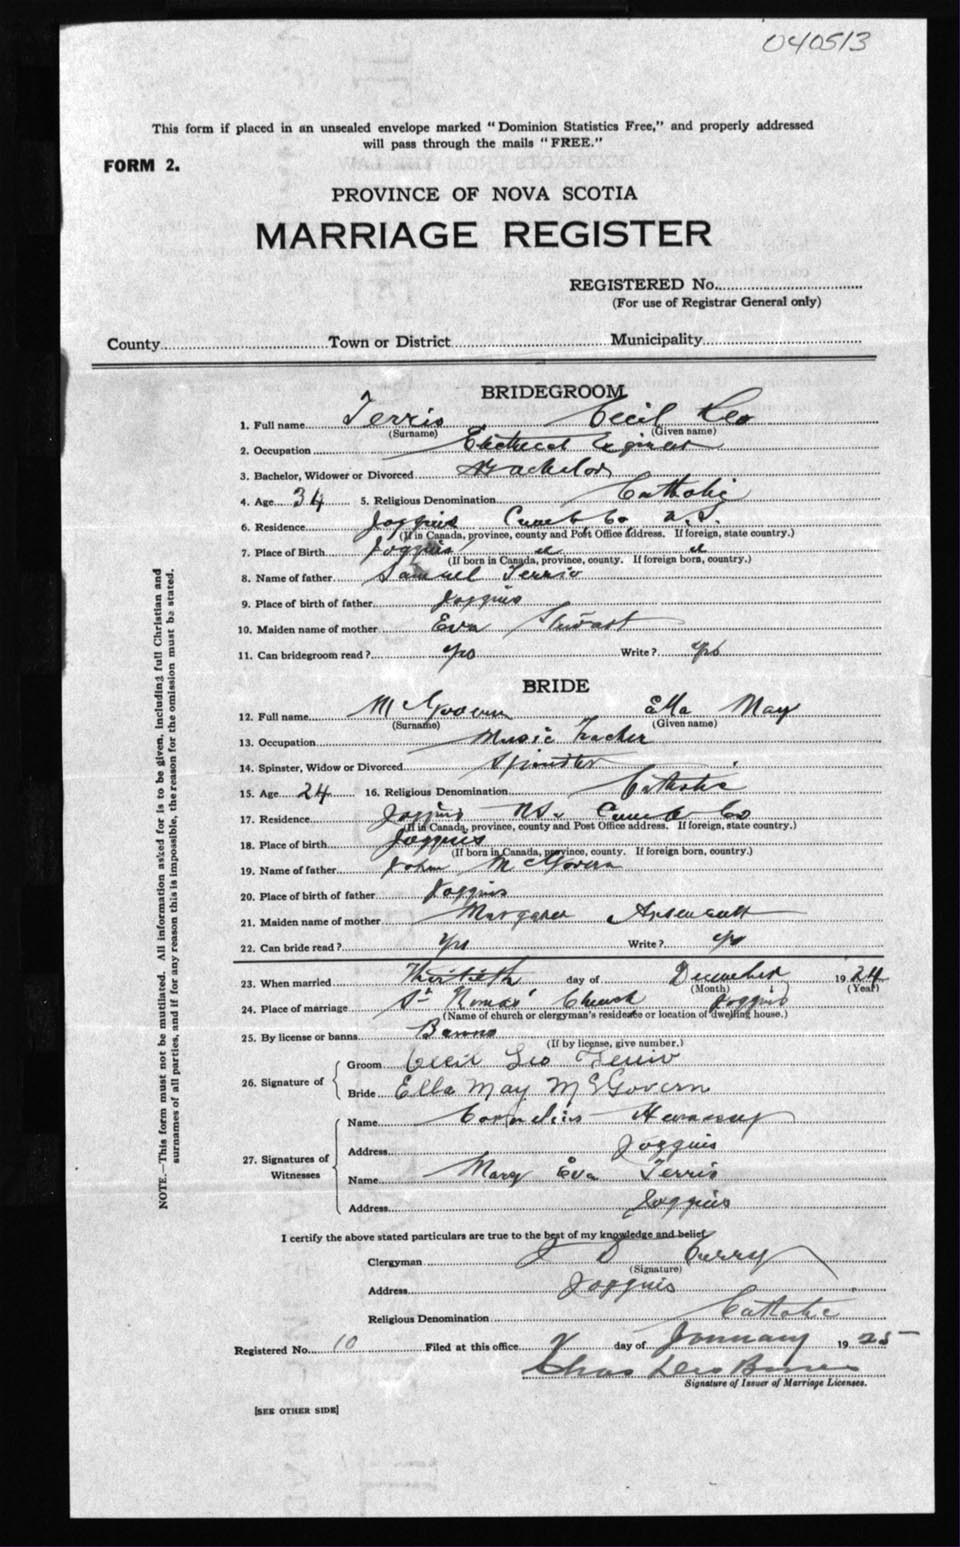 040513
This form if placed in an unsealed envelope marked "Dominion Statistics Free," and properly addressed
will pass through the mails "FREE."
FORM 2.
PROVINCE OF NOVA SCOTIA
MARRIAGE REGISTER
REGISTERED No.
(For use of Registrar General only)
County Town or District Municipality
BRIDEGROOM
1. Full name Terris Cecil Leo
(Surname) (Given name)
2. Occupation Electrical Engineer
3. Bachelor, Widower or Divorced Bachelor
4. Age 34 5. Religious Denomination Catholic
6. Residence Joggins Cumb Co N.S.
(If in Canada, province, county and Post Office address. If foreign, state country.)
7. Place of Birth Joggins
(If born in Canada, province, county. If foreign born, country.)
8. Name of father Samuel Terrio
9. Place of birth of father Joggins
10. Maiden name of mother Eva Stewart
11. Can bridegroom read? yes Write? yes
BRIDE
12. Full name McGovern Ella May
(Surname) (Given name)
13. Occupation Music Teacher
14. Spinster, Widow or Divorced Spinster
15. Age 24 16. Religious Denomination Catholic
17. Residence Joggins N.S. Cumb Co
(If in Canada, province, county and Post Office address. If foreign, state country.)
18. Place of birth Joggins
(If born in Canada, province, county. If foreign born, country.)
19. Name of father John McGovern
20. Place of birth of father Joggins
21. Maiden name of mother Margaret Arsenault
22. Can bride read? Yes Write? yes
23. When married Thirtieth day of December 1924
(Month) (Year)
24. Place of marriage St Church Joggins
(Name of church or clergyman's residence or location of dwelling house.)
25. By license or banns Banns
(If by license, give number.)
26. Signature of Groom Cecil Leo Terrio
Bride Ella May McGovern
27. Signatures of Witnesses
Name Cornelius
Address Joggins
Name Mary Eva Terris
Address Joggins
I certify the above stated particulars are true to the best of my knowledge and belief.
Clergyman J D Curry
(Signature)
Address Joggins
Religious Denomination Catholic
Registered No. 10 Filed at this office day of January 1925
Chas Leo
Signature of Issuer of Marriage Licenses.
[SEE OTHER SIDE]
NOTE.—This form must not be mutilated. All information asked for is to be given, including full Christian and
surnames of all parties, and if for any reason this is impossible, the reason for the omission must be stated.